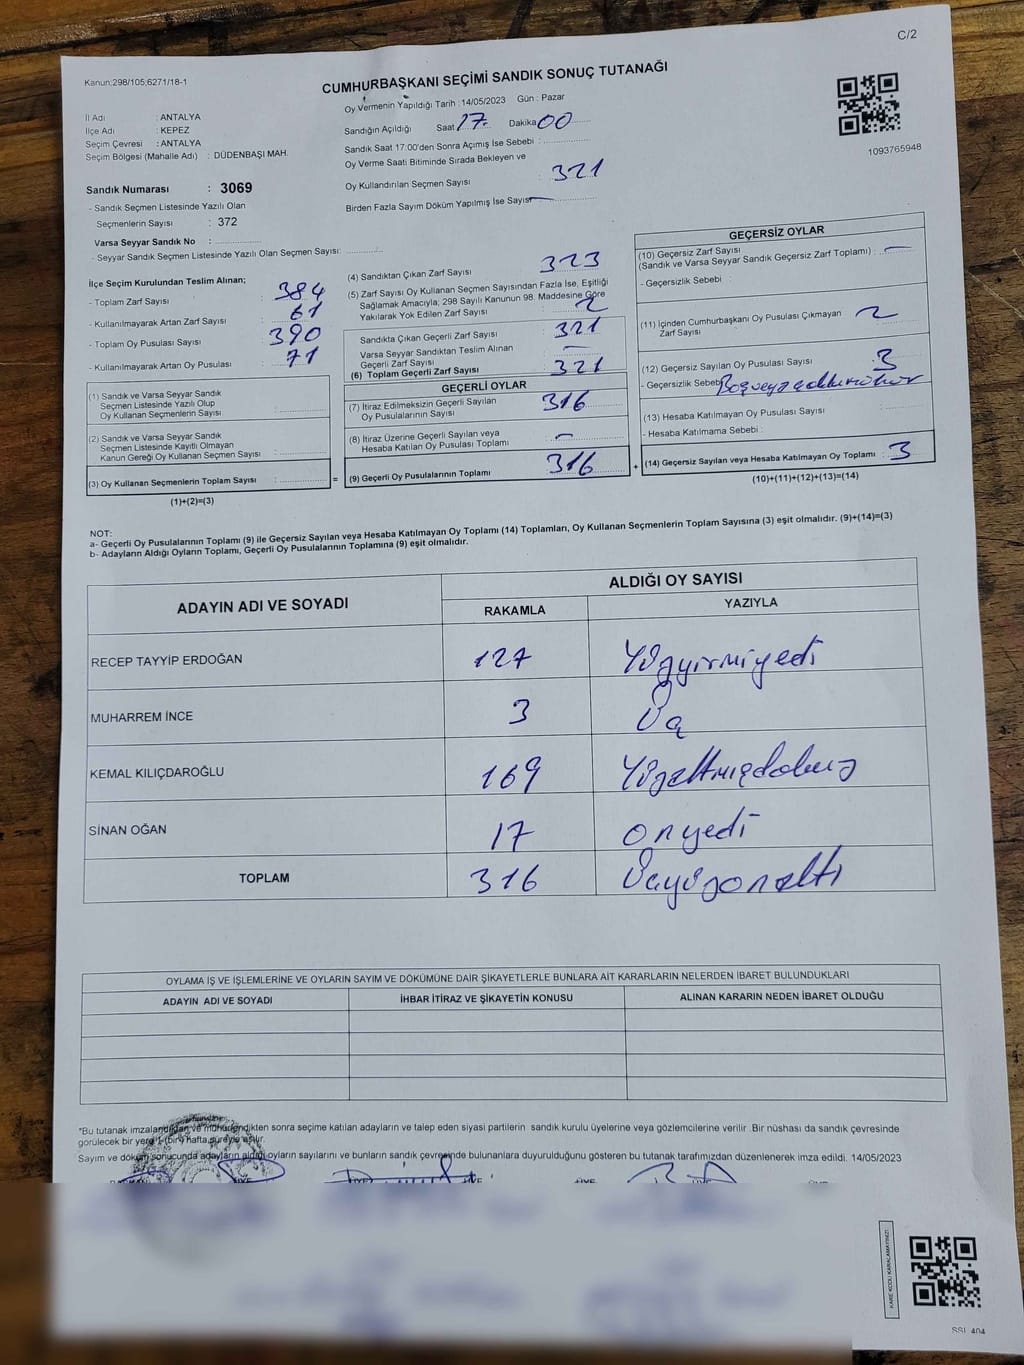 C/2
Kanun;298/105;6271/18-1
CUMHURBAŞKANI SEÇİMİ SANDIK SONUÇ TUTANAĞI
İl Adı : ANTALYA
İlçe Adı : KEPEZ
Seçim Çevresi : ANTALYA
Seçim Bölgesi (Mahalle Adı) : DÜDENBAŞI MAH.
Oy Vermenin Yapıldığı Tarih : 14/05/2023 Gün : Pazar
Sandığın Açıldığı Saat 17. Dakika 00
Sandık Saat 17:00'den Sonra Açımış İse Sebebi :
Oy Verme Saati Bitiminde Sırada Bekleyen ve
Oy Kullandırılan Seçmen Sayısı 321
Birden Fazla Sayım Döküm Yapılmış İse Sayısı —
1093765948
Sandık Numarası : 3069
- Sandık Seçmen Listesinde Yazılı Olan
Seçmenlerin Sayısı : 372
Varsa Seyyar Sandık No :
- Seyyar Sandık Seçmen Listesinde Yazılı Olan Seçmen Sayısı:
İlçe Seçim Kurulundan Teslim Alınan;
- Toplam Zarf Sayısı : 384
- Kullanılmayarak Artan Zarf Sayısı : 61
- Toplam Oy Pusulası Sayısı : 390
- Kullanılmayarak Artan Oy Pusulası : 71
(1) Sandık ve Varsa Seyyar Sandık
Seçmen Listesinde Yazılı Olup
Oy Kullanan Seçmenlerin Sayısı :
(2) Sandık ve Varsa Seyyar Sandık
Seçmen Listesinde Kayıtlı Olmayan
Kanun Gereği Oy Kullanan Seçmen Sayısı :
(3) Oy Kullanan Seçmenlerin Toplam Sayısı : =
(1)+(2)=(3)
(4) Sandıktan Çıkan Zarf Sayısı 323
(5) Zarf Sayısı Oy Kullanan Seçmen Sayısından Fazla İse, Eşitliği
Sağlamak Amacıyla; 298 Sayılı Kanunun 98. Maddesine Göre
Yakılarak Yok Edilen Zarf Sayısı : 2
Sandıkta Çıkan Geçerli Zarf Sayısı : 321
Varsa Seyyar Sandıktan Teslim Alınan
Geçerli Zarf Sayısı : —
(6) Toplam Geçerli Zarf Sayısı : 321
GEÇERLİ OYLAR
(7) İtiraz Edilmeksizin Geçerli Sayılan
Oy Pusulalarının Sayısı : 316
(8) İtiraz Üzerine Geçerli Sayılan veya
Hesaba Katılan Oy Pusulası Toplamı : —
(9) Geçerli Oy Pusulalarının Toplamı : 316 +
GEÇERSİZ OYLAR
(10) Geçersiz Zarf Sayısı
(Sandık ve Varsa Seyyar Sandık Geçersiz Zarf Toplamı) : —
- Geçersizlik Sebebi :
(11) İçinden Cumhurbaşkanı Oy Pusulası Çıkmayan
Zarf Sayısı : 2
(12) Geçersiz Sayılan Oy Pusulası Sayısı : 3
- Geçersizlik Sebebi
(13) Hesaba Katılmayan Oy Pusulası Sayısı :
- Hesaba Katılmama Sebebi :
(14) Geçersiz Sayılan veya Hesaba Katılmayan Oy Toplamı : 3
(10)+(11)+(12)+(13)=(14)
NOT:
a- Geçerli Oy Pusulalarının Toplamı (9) ile Geçersiz Sayılan veya Hesaba Katılmayan Oy Toplamı (14) Toplamları, Oy Kullanan Seçmenlerin Toplam Sayısına (3) eşit olmalıdır. (9)+(14)=(3)
b- Adayların Aldığı Oyların Toplamı, Geçerli Oy Pusulalarının Toplamına (9) eşit olmalıdır.
ADAYIN ADI VE SOYADI
ALDIĞI OY SAYISI
RAKAMLA YAZIYLA
RECEP TAYYİP ERDOĞAN 127 Yüzyirmiyedi
MUHARREM İNCE 3 Üç
KEMAL KILIÇDAROĞLU 169 Yüzaltmışdokuz
SİNAN OĞAN 17 onyedi
TOPLAM 316 Üçyüzonaltı
OYLAMA İŞ VE İŞLEMLERİNE VE OYLARIN SAYIM VE DÖKÜMÜNE DAİR ŞİKAYETLERLE BUNLARA AİT KARARLARIN NELERDEN İBARET BULUNDUKLARI
ADAYIN ADI VE SOYADI İHBAR İTİRAZ VE ŞİKAYETİN KONUSU ALINAN KARARIN NEDEN İBARET OLDUĞU
*Bu tutanak imzalandıktan ve mühürlendikten sonra seçime katılan adayların ve talep eden siyasi partilerin sandık kurulu üyelerine veya gözlemcilerine verilir .Bir nüshası da sandık çevresinde
görülecek bir yere 1 (bir) hafta süreyle asılır.
Sayım ve döküm sonucunda adayların aldığı oyların sayılarını ve bunların sandık çevresinde bulunanlara duyurulduğunu gösteren bu tutanak tarafımızdan düzenlenerek imza edildi. 14/05/2023
KARE KODU KARALAMAYINIZ!